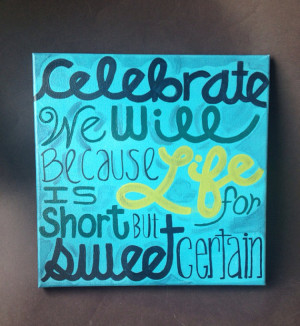 Celebrate
We Will
Because Life
Is for
Short But
Sweet Certain